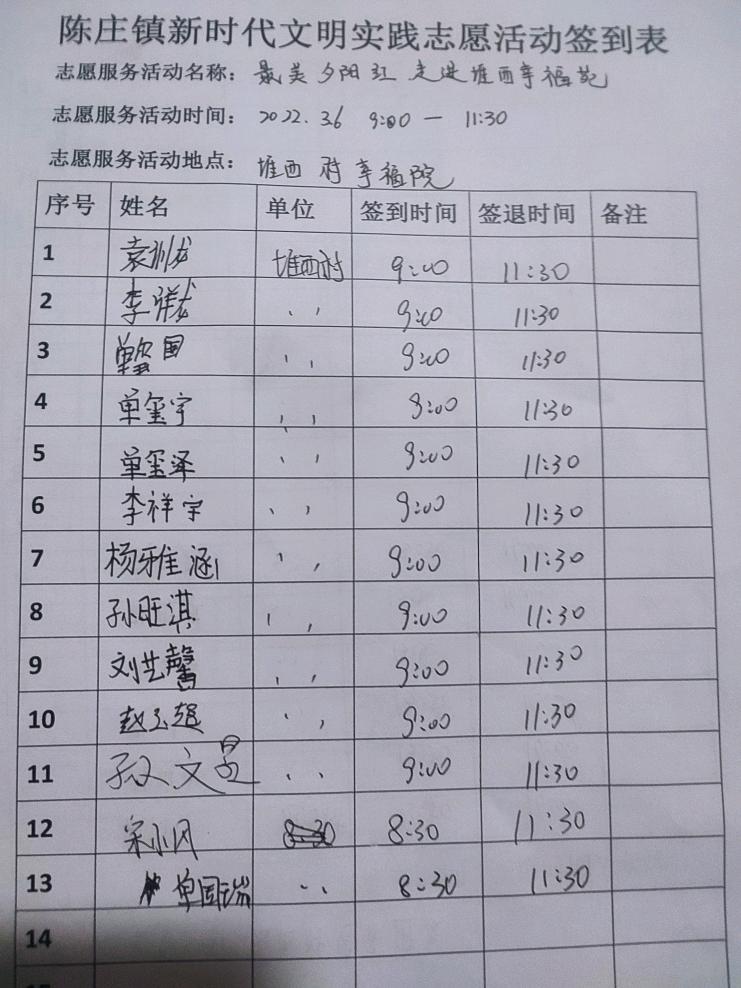 陈庄镇新时代文明实践志愿活动签到表
志愿服务活动名称：最美夕阳红 走进堆西幸福院
志愿服务活动时间：2022.3.6 9:00 — 11:30
志愿服务活动地点：堆西村幸福院
序号 姓名 单位 签到时间 签退时间 备注
1 袁洲龙 堆西村 9:00 11:30
2 李祥龙 〃 9:00 11:30
3 单 国 〃 9:00 11:30
4 单玺宇 〃 9:00 11:30
5 单玺泽 〃 9:00 11:30
6 李祥宇 〃 9:00 11:30
7 杨雅涵 〃 9:00 11:30
8 孙旺淇 〃 9:00 11:30
9 刘艺馨 〃 9:00 11:30
10 赵玉超 〃 9:00 11:30
11 孙文昱 〃 9:00 11:30
12 宋小风 8:30 8:30 11:30
13 单国瑞 〃 8:30 11:30
14